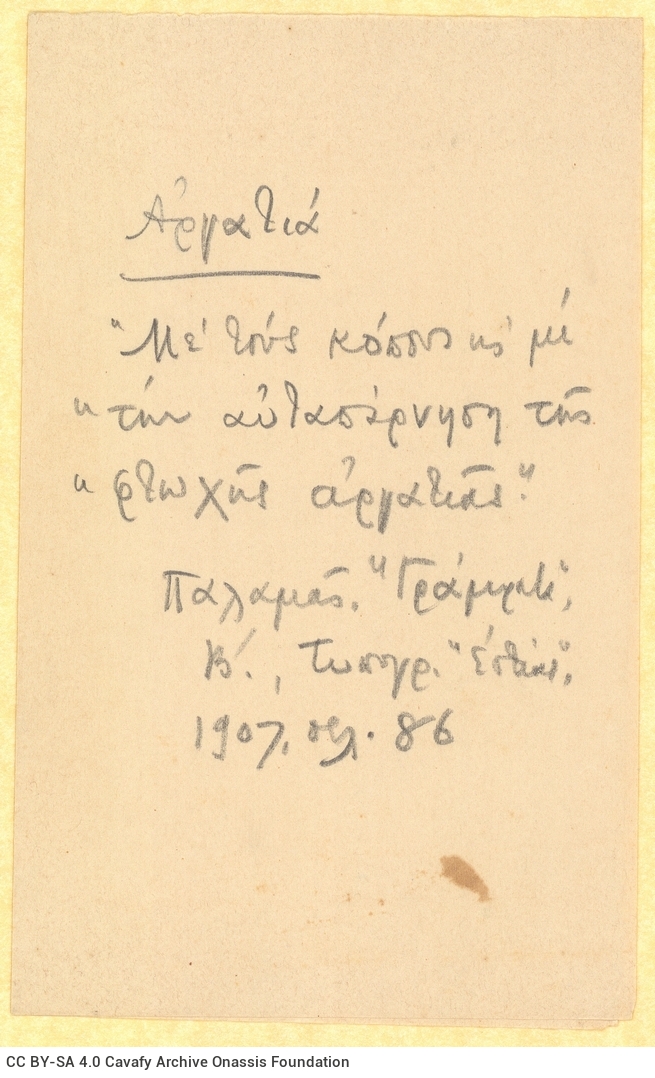 Ἀργατιά
"Μὲ τοὺς κόπους κι' μὲ
"τὴν αὐταπάρνηση τῆς
"φτωχῆς ἀργατιᾶς."
Παλαμᾶς, "Γράμματα",
Β'., Τυπογρ. "Ἑστίας",
1907, σελ. 86
CC BY-SA 4.0 Cavafy Archive Onassis Foundation